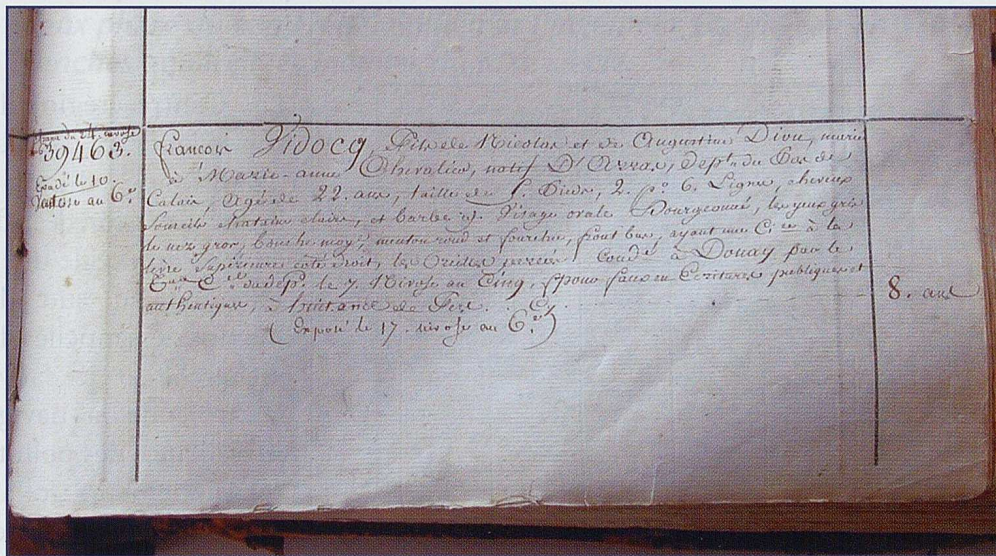 Chaine du 24. nivose
39463.
Evadé le 10.
Ventose au 6.e
françois Vidocq, fils de Nicolas et de Augustine Dion, marié
à Marie-anne Chevalier, natif D'Arras, dept. du Pas de
Calais, agé de 22. ans, taille de 5. Pieds, 2. po 6. Lignes, cheveux
Sourcils chatains claire, et barbe Visage ovale Bourgeonné, les yeux gris
le nez gros, bouche moye. menton rond et fourchu, front bas, ayant une Cice à la
levre Supérieure côté droit, les Oreilles percées Condé à Douay par le
Cel du dep. le 7. Nivose an Cinq, pour faux en Ecritures publiques et
authentiques, à huit ans de Fers. Cy.
8. ans
(Exposé le 17. nivose au 6.e)